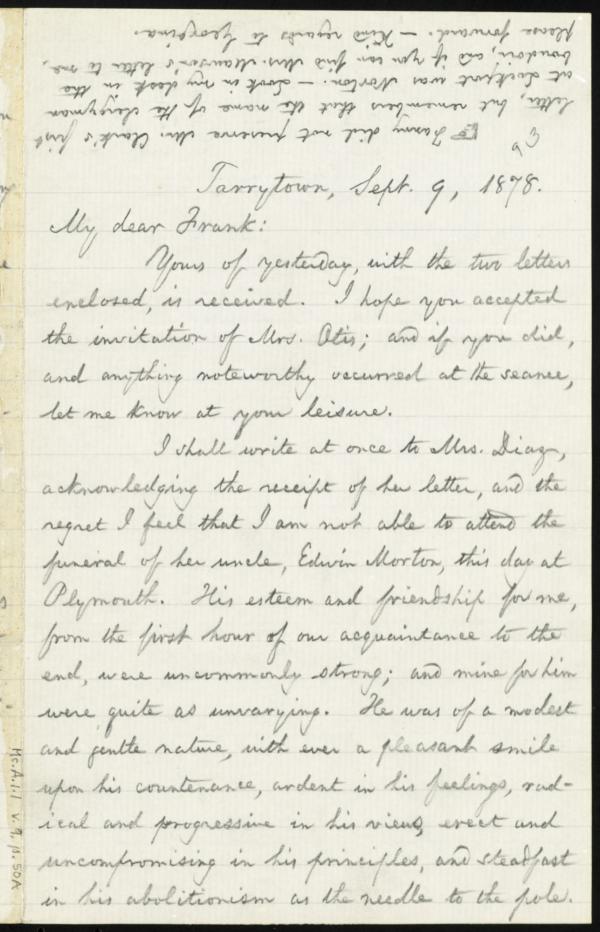 ☞ Fanny did not preserve Mr. Clark's first
letter, but remembers that the name of the clergyman
at Lockport was Norton. — Look in my desk in the
boudoir, and if you can find Mrs. Manson's letter to me,
please forward. — Kind regards to Georgina.
Tarrytown, Sept. 9, 1878.
My dear Frank:
Yours of yesterday, with the two letters
enclosed, is received. I hope you accepted
the invitation of Mrs. Otis; and if you did,
and anything noteworthy occurred at the seance,
let me know at your leisure.
I shall write at once to Mrs. Diaz,
acknowledging the receipt of her letter, and the
regret I feel that I am not able to attend the
funeral of her uncle, Edwin Morton, this day at
Plymouth. His esteem and friendship for me,
from the first hour of our acquaintance to the
end, were uncommonly strong; and mine for him
were quite as unvarying. He was of a modest
and gentle nature, with ever a pleasant smile
upon his countenance, ardent in his feelings, rad-
ical and progressive in his views, erect and
uncompromising in his principles, and steadfast
in his abolitionism as the needle to the pole.
Ms.A.1.1 v.9, p.50A